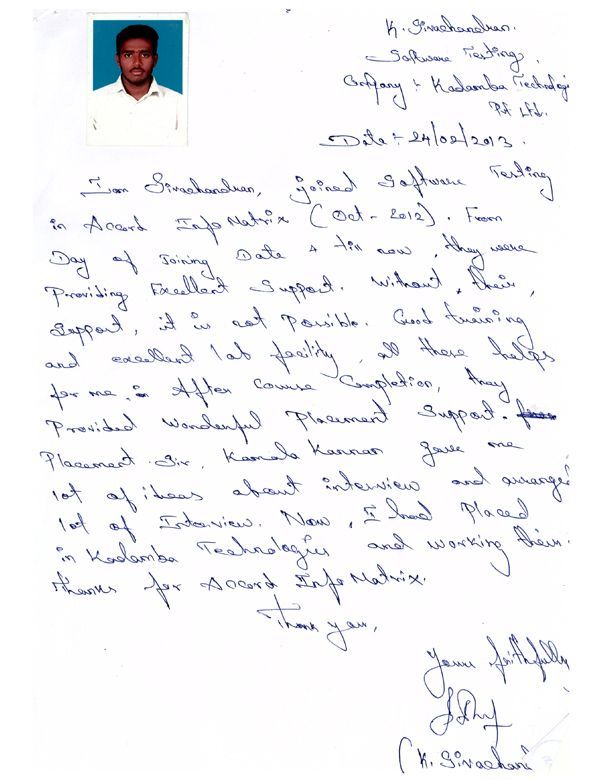 K. Sivachandran.
Software Testing.
Company :- Kadamba Technologi
Pvt Ltd.
Date :- 24/02/2013.
I am Sivachandran, joined Software Testing
in Accord Info Matrix (Oct - 2012). From
Day of Joining Date & till now, they were
Providing Excellent Support. Without their,
Support, it is not Possible. Good training
and excellent lab facility, all these helps
for me. After Course Completion, they
Provided Wonderful Placement Support.
Placement Sir, Kamala Kannan gave me
lot of ideas about interview and arranged
lot of Interview. Now, I had Placed
in Kadamba Technologies and working their.
thanks for Accord Info Matrix.
Thank you,
Yours faithfully
(K. Sivachand